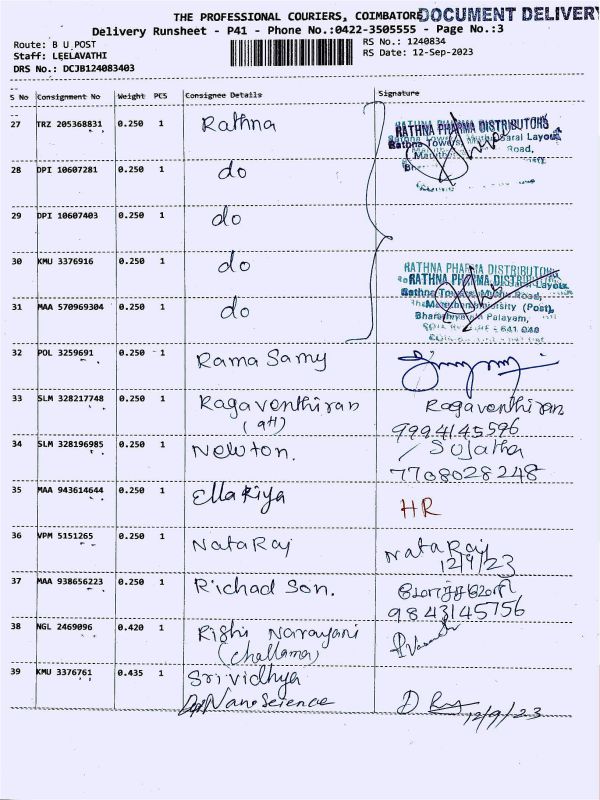 THE PROFESSIONAL COURIERS, COIMBATORE DOCUMENT DELIVERY
Delivery Runsheet - P41 - Phone No.:0422-3505555 - Page No.:3
Route: B U POST
RS No.: 1240834
Staff: LEELAVATHI
RS Date: 12-Sep-2023
DRS No.: DCJB124083403
S No Consignment No Weight PCS Consignee Details Signature
27 TRZ 205368831 0.250 1 Rathna
RATHNA PHARMA DISTRIBUTORS
28 DPI 10607281 0.250 1 do
29 DPI 10607403 0.250 1 do
30 KMU 3376916 0.250 1 do
RATHNA PHARMA DISTRIBUTORS
31 MAA 570969304 0.250 1 do
Bharathiyar Palayam,
32 POL 3259691 0.250 1 Rama Samy
33 SLM 328217748 0.250 1 Ragaventhiran Ragaventhiran
(att) 9994145596
34 SLM 328196985 0.250 1 Newton. Sujatha
7708028248
35 MAA 943614644 0.250 1 Ella Riya HR
36 VPM 5151265 0.250 1 NataRaj NataRaj
12/9/23
37 MAA 938656223 0.250 1 Richad Son.
9843145756
38 NGL 2469096 0.420 1 Rishi Narayani
(Chellama)
39 KMU 3376761 0.435 1 Srividhya
NanoScience 12/9/23